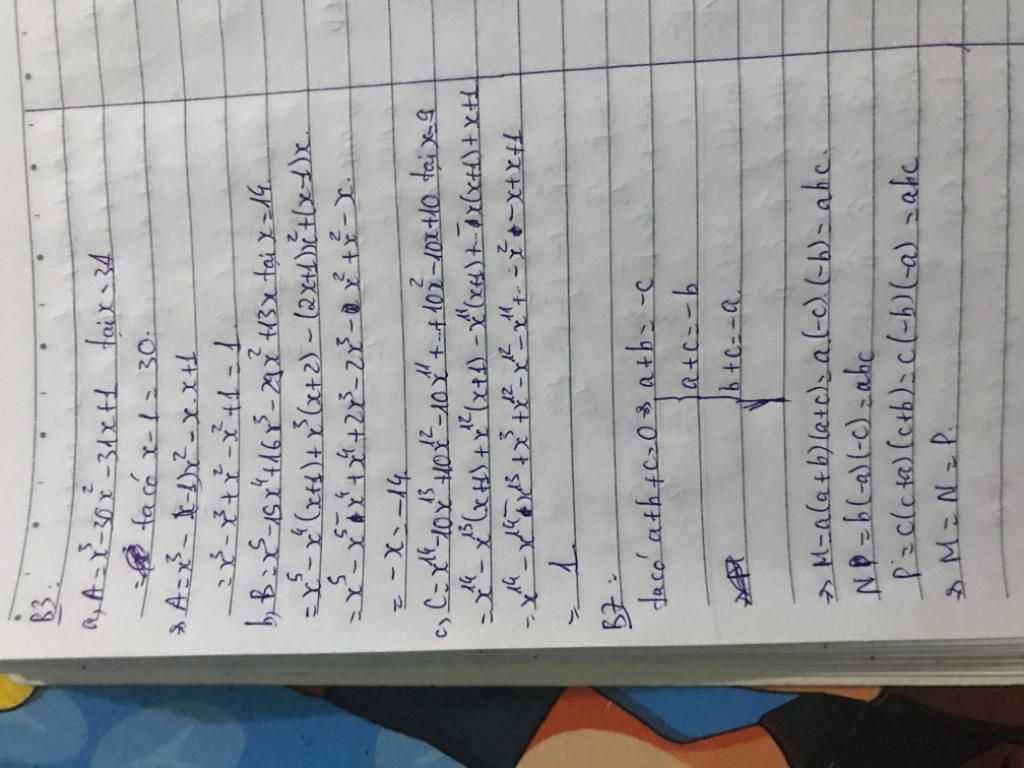 B3:
a, A = x³ - 30x² - 31x + 1 tại x = 31
= ta có x - 1 = 30.
⇒ A = x³ - (x-1)x² - x.x + 1
= x³ - x³ + x² - x² + 1 = 1
b, B = x⁵ - 15x⁴ + 16x³ - 29x² + 13x tại x = 14.
= x⁵ - x⁴(x+1) + x³(x+2) - (2x+1)x² + (x-1)x.
= x⁵ - x⁵ - x⁴ + x⁴ + 2x³ - 2x³ - x² + x² - x.
= -x = -14
c, C = x¹⁴ - 10x¹³ + 10x¹² - 10x¹¹ + ... + 10x² - 10x + 10 tại x = 9
= x¹⁴ - x¹³(x+1) + x¹²(x+1) - x¹¹(x+1) + - x(x+1) + x + 1
= x¹⁴ - x¹⁴ - x¹³ + x¹³ + x¹² - x¹² - x¹¹ + - - x² - x + x + 1
= 1
B7:
ta có a+b+c=0 ⇒ a+b = -c
a+c = -b
b+c = -a.
⇒ M = a(a+b)(a+c) = a(-c).(-b) = abc.
N = b(-a)(-c) = abc
P = c(c+a)(c+b) = c(-b)(-a) = abc
⇒ M = N = P.